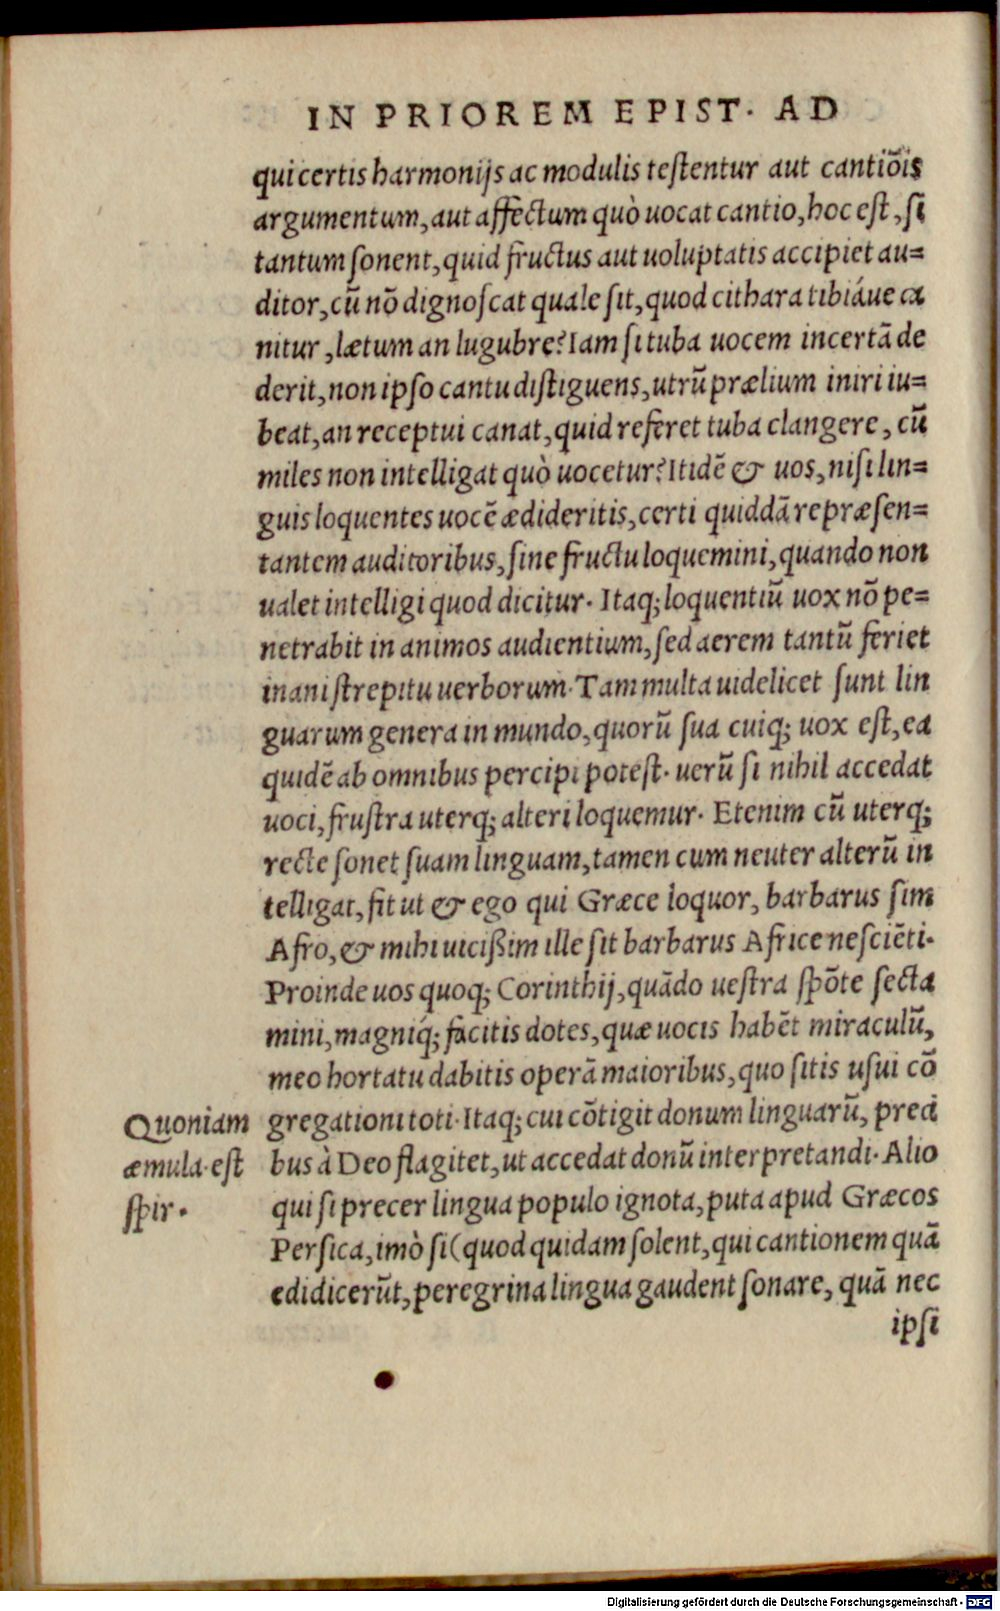 IN PRIOREM EPIST. AD
qui certis harmonijs ac modulis teſtentur aut cantiõis
argumentum, aut affectum quò uocat cantio, hoc eſt, ſi
tantum ſonent, quid fructus aut uoluptatis accipiet au=
ditor, cũ nõ dignoſcat quale ſit, quod cithara tibiáue ca
nitur, lætum an lugubre? Iam ſi tuba uocem incertã de
derit, non ipſo cantu diſtiguens, utrũ prælium iniri iu=
beat, an receptui canat, quid referet tuba clangere, cũ
miles non intelligat quò uocetur? Itidẽ & uos, niſi lin=
guis loquentes uocẽ ædideritis, certi quiddã repræſen=
tantem auditoribus, ſine fructu loquemini, quando non
ualet intelligi quod dicitur. Itaq; loquentiũ uox nõ pe=
netrabit in animos audientium, ſed aerem tantũ feriet
inani ſtrepitu uerborum. Tam multa uidelicet ſunt lin
guarum genera in mundo, quorũ ſua cuiq; uox eſt, ea
quidẽ ab omnibus percipi poteſt. uerũ ſi nihil accedat
uoci, fruſtra uterq; alteri loquemur. Etenim cũ uterq;
recte ſonet ſuam linguam, tamen cum neuter alterũ in
telligat, fit ut & ego qui Græce loquor, barbarus ſim
Afro, & mihi uicißim ille ſit barbarus Africe neſciẽti.
Proinde uos quoq; Corinthij, quãdo ueſtra ſpõte ſecta
mini, magniq́; facitis dotes, quæ uocis habẽt miraculũ,
meo hortatu dabitis operã maioribus, quo ſitis uſui cõ
Quoniam
æmula. eſt
ſpir.
gregationi toti. Itaq; cui cõtigit donum linguarũ, preci
bus à Deo flagitet, ut accedat donũ interpretandi. Alio
qui ſi precer lingua populo ignota, puta apud Græcos
Perſica, imò ſi (quod quidam ſolent, qui cantionem quã
edidicerũt, peregrina lingua gaudent ſonare, quã nec
ipſi
Digitalisierung gefördert durch die Deutsche Forschungsgemeinschaft - DFG